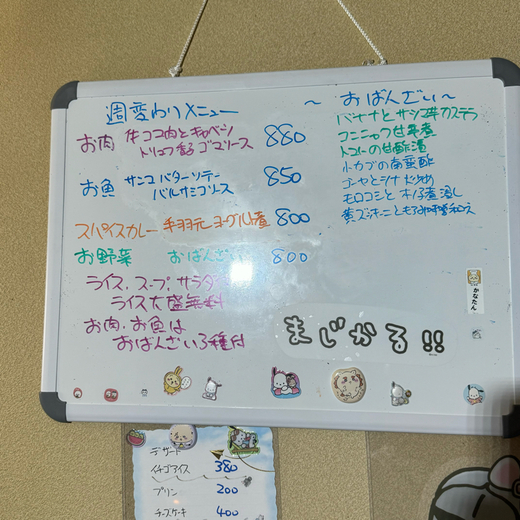 週変わりメニュー
お肉 牛ココ肉とキャベツ
トリュフ香る ゴマソース 880
お魚 サンマ バターソテー
バルサミコソース 850
スパイスカレー 手羽元ヨーグルト煮 800
お野菜 おばんざい 800
ライス、スープ、サラダ
ライス大盛無料
お肉・お魚は
おばんざい3種付
〜 おばんざい 〜
バナナとサツマ芋カステラ
コンニャク甘辛煮
トマトの甘酢漬
小カブの南蛮酢
ゴーヤとツナ炒め
モロコシと
黄ズッキーニともろ
かなたん
まじかる!!
デザート
イチゴアイス 380
プリン 200
チーズケーキ 400